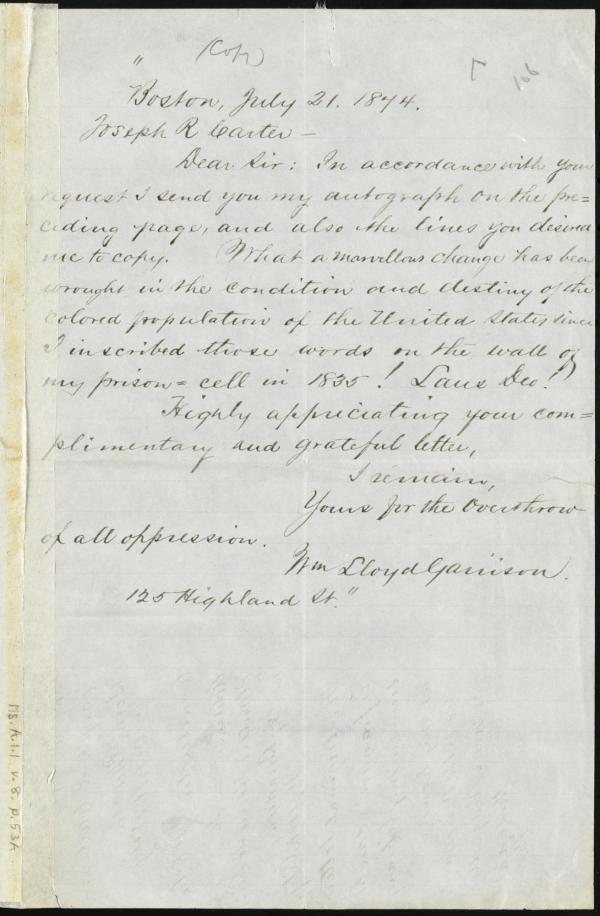 (Copy)
106
" Boston, July 21. 1874.
Joseph R Carter —
Dear Sir: In accordance with your
request I send you my autograph on the pre=
ceding page, and also the lines you desired
me to copy. What a marvellous change has been
wrought in the condition and destiny of the
colored population of the United States since
I inscribed those words on the wall of
my prison=cell in 1835! Laus Deo!
Highly appreciating your com=
plimentary and grateful letter,
I remain,
Yours for the overthrow
of all oppression.
Wm Lloyd Garrison.
125 Highland St."
Ms. A.1.1 v.8, p.53A